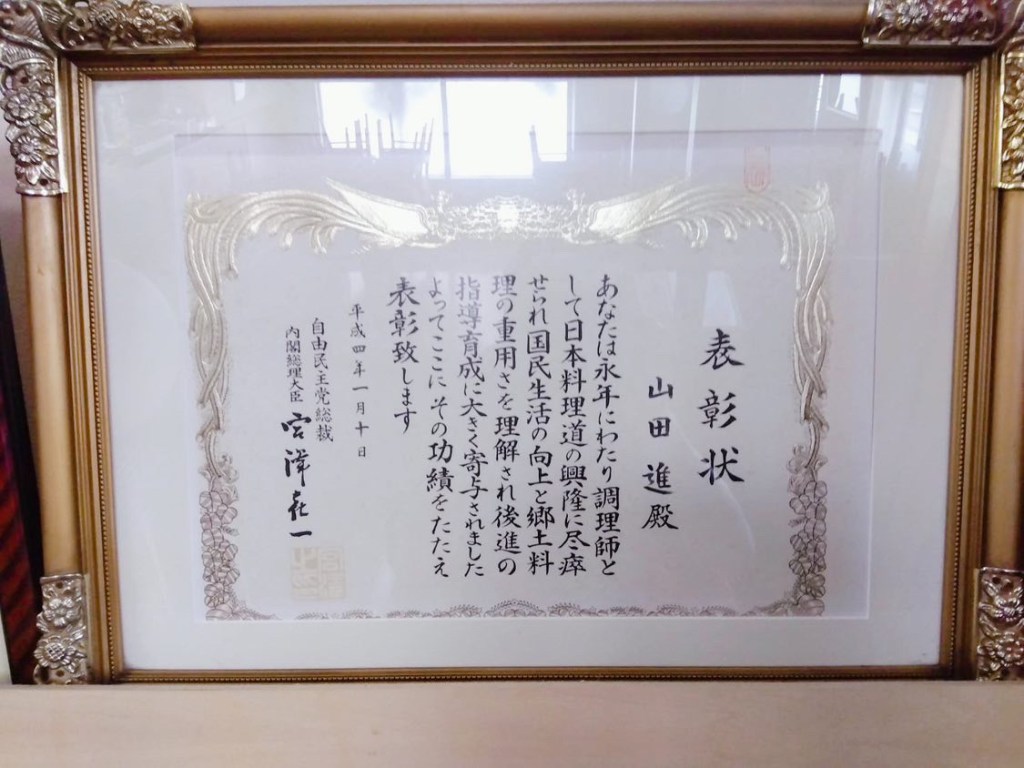 表彰状
山田進殿
あなたは永年にわたり調理師と
して日本料理道の興隆に尽瘁
せられ国民生活の向上と郷土料
理の重用さを理解され後進の
指導育成に大きく寄与されました
よってここにその功績をたたえ
表彰致します
平成四年一月十日
自由民主党総裁
内閣総理大臣
宮澤喜一